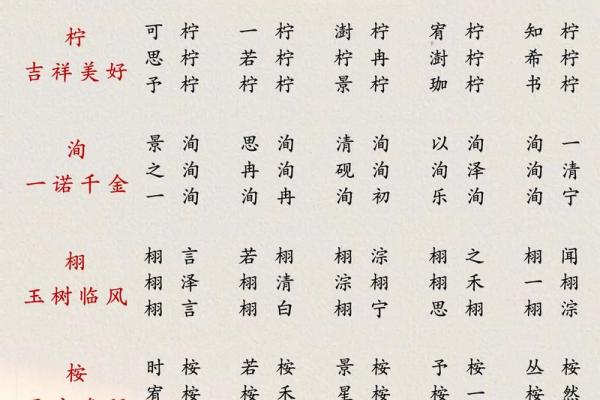 柠
吉祥美好
可柠 一柠 澍柠 宥柠 知柠
思柠 若柠 柠冉 澍柠 希柠
予柠 柠柠 景柠 珈柠 书柠
洵
一诺千金
景洵 思洵 清洵 以洵 洵一
之洵 冉洵 砚洵 洵泽 洵清
一洵 洵冉 洵初 乐洵 洵宁
栩
玉树临风
栩言 若栩 栩淙 栩之 栩闻
栩泽 栩清 淙栩 栩禾 一栩
栩言 栩白 栩宁 思栩 栩淙
桉
时桉 若桉 景桉 予桉 丛桉
宥桉 桉禾 星桉 桉一 桉然